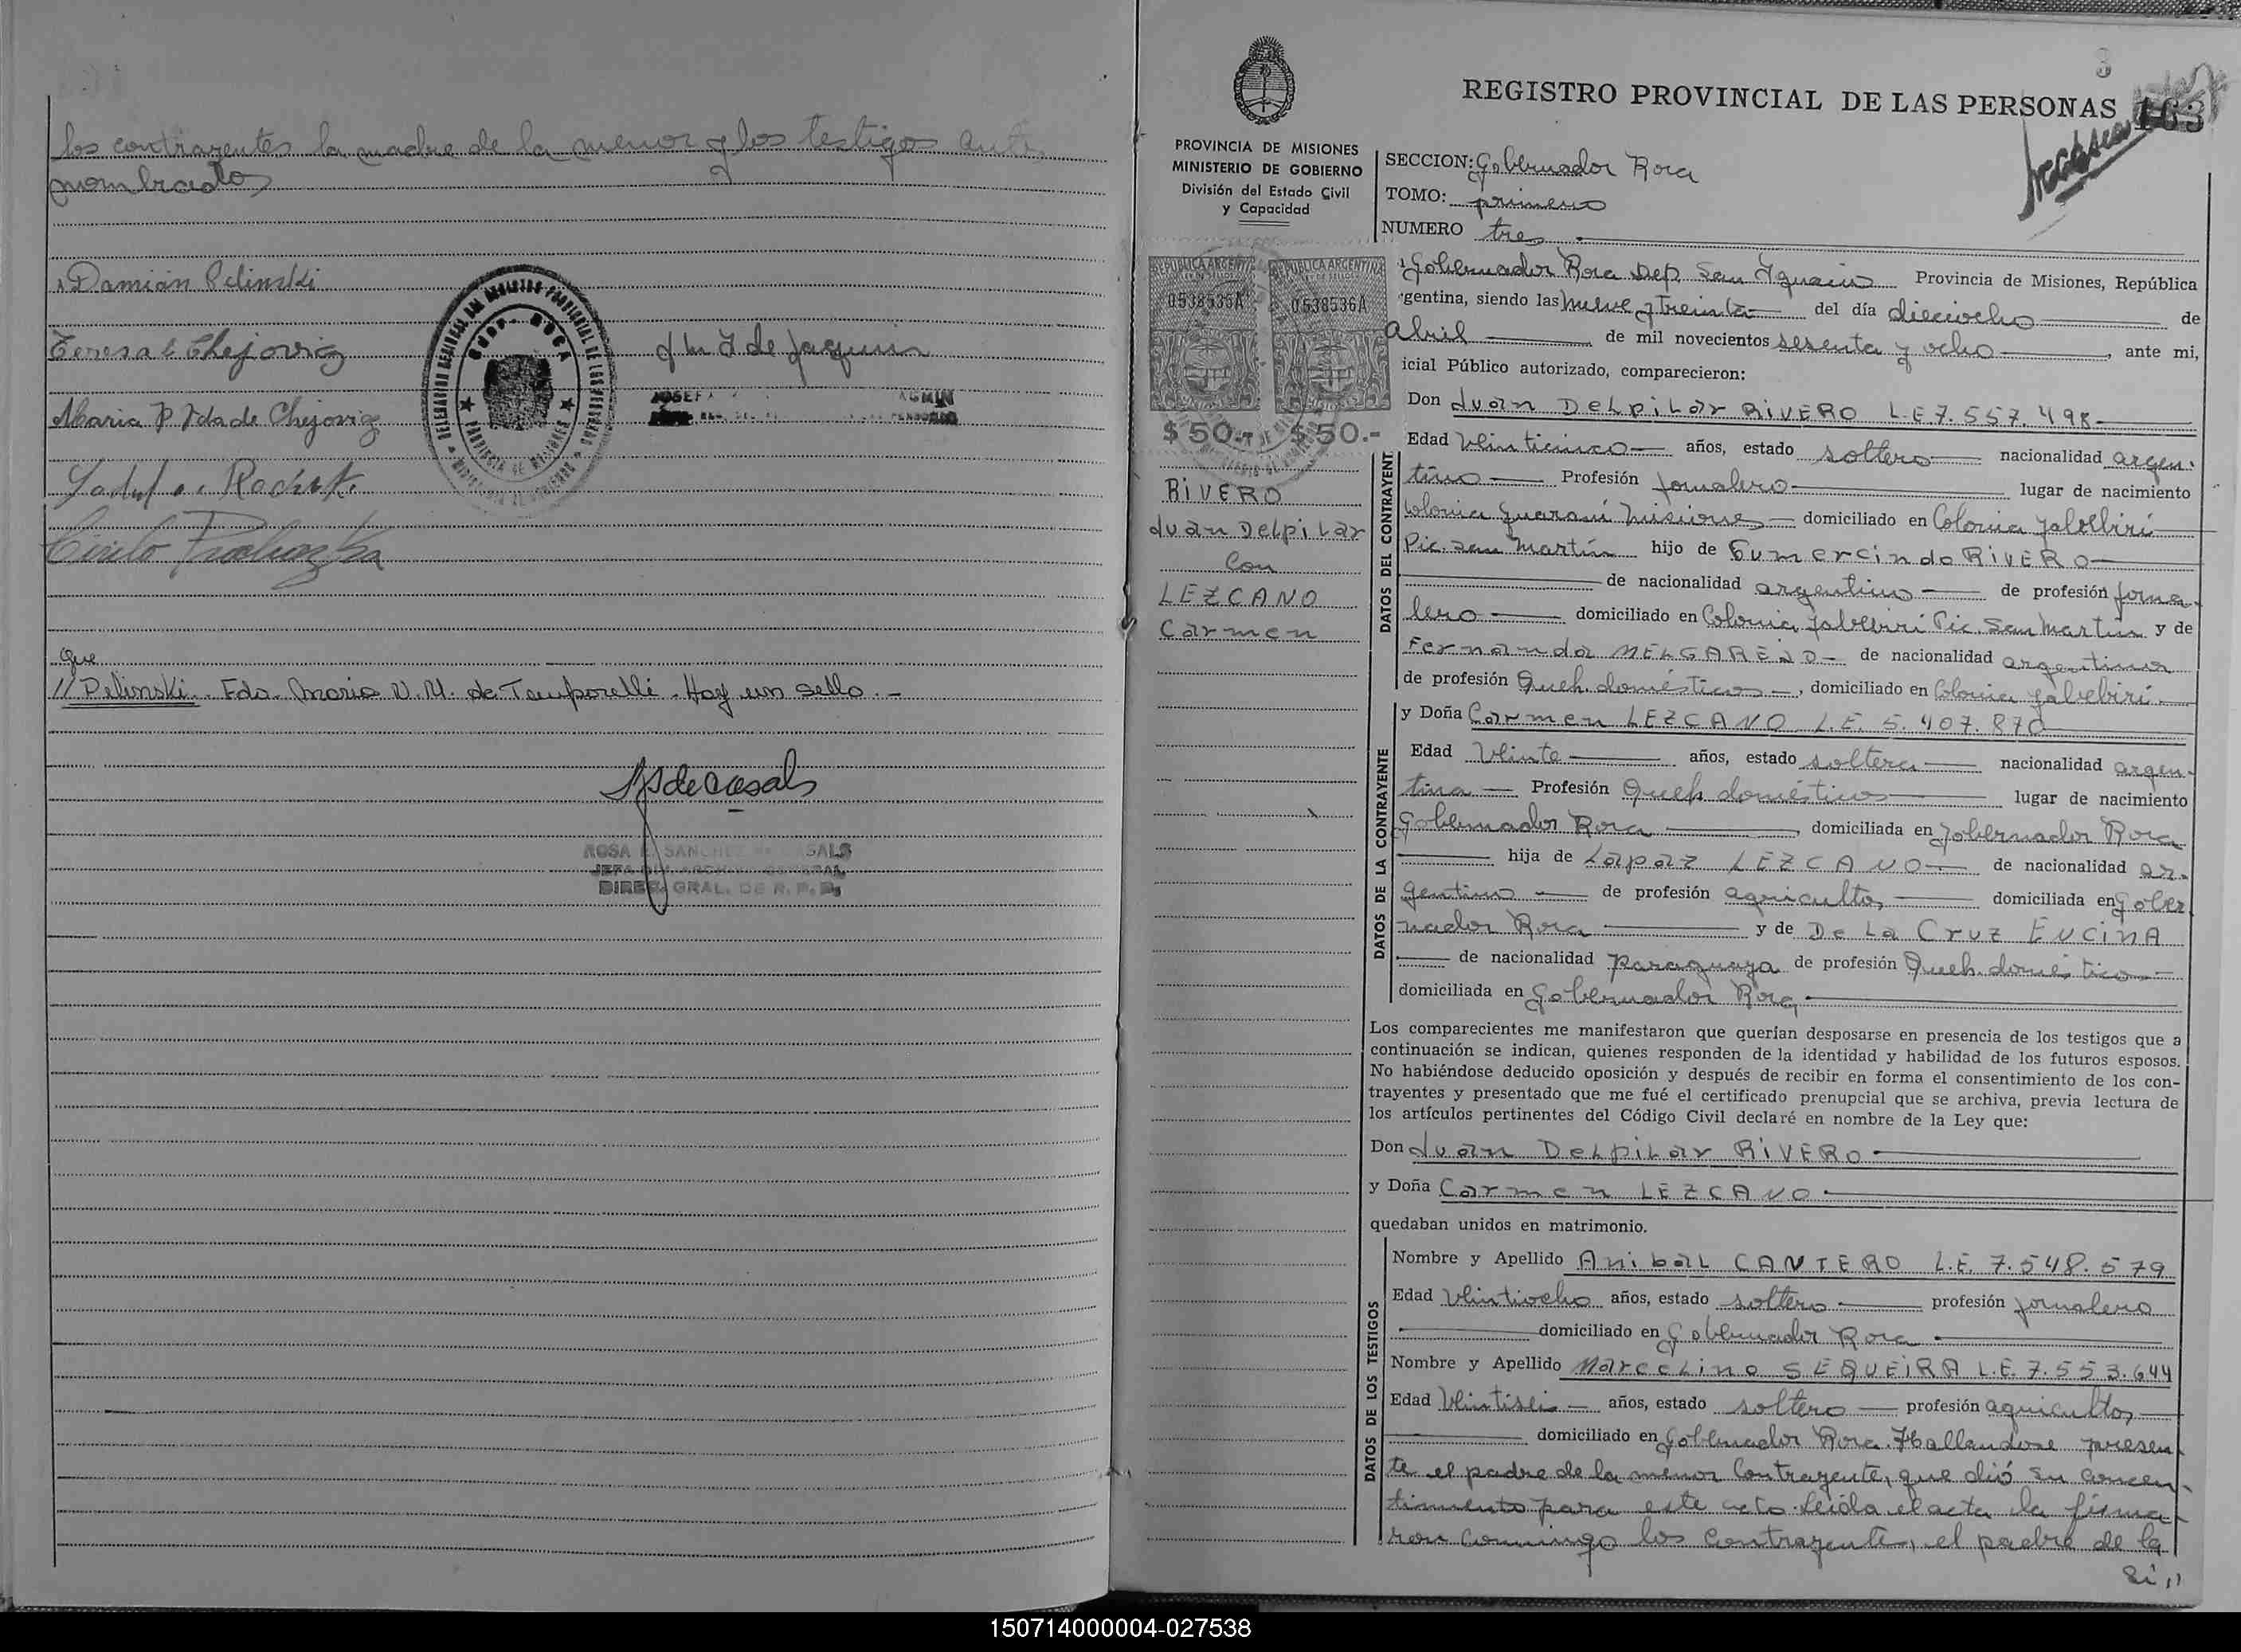 los contrayentes la madre de la menor y los testigos ante
nombrados
Damián Pelinski
Teresa Chejoviz
Maria P. Ida de Chejoviz
de Jaquin
Cirilo
Que
// Pelinski. Fdo. Maria N. M. de Temporelli. Hay un sello.-
de Casals
ROSA E. SANCHEZ DE CASALS
JEFA DEL ARCHIVO GENERAL
DIREC. GRAL. DE R. P. P.
REGISTRO PROVINCIAL DE LAS PERSONAS 163
3
PROVINCIA DE MISIONES
MINISTERIO DE GOBIERNO
División del Estado Civil
y Capacidad
SECCION: Gobernador Roca
TOMO: primero
NUMERO tres
REPUBLICA ARGENTINA REPUBLICA ARGENTINA
0538535A 0538536A
$50.- $50.-
RIVERO
Juan Delpilar
Con
LEZCANO
Carmen
Gobernador Roca Dep. San Ignacio Provincia de Misiones, República
gentina, siendo las nueve y treinta del día dieciocho de
Abril de mil novecientos sesenta y ocho, ante mi,
icial Público autorizado, comparecieron:
DATOS DEL CONTRAYENT
Don Juan Delpilar RIVERO L.E. 7.557.498
Edad Veinticinco años, estado soltero nacionalidad argen-
tino Profesión Jornalero lugar de nacimiento
Colonia Guaraní Misiones domiciliado en Colonia Yabebirí
Pic. San Martín hijo de Gumercindo RIVERO
de nacionalidad argentino de profesión jorna-
lero domiciliado en Colonia Yabebirí Pic. San Martín y de
Fernanda MELGAREJO de nacionalidad argentina
de profesión Queh. domésticos, domiciliado en Colonia Yabebirí
DATOS DE LA CONTRAYENTE
y Doña Carmen LEZCANO L.E. 5.407.870
Edad Veinte años, estado soltera nacionalidad argen-
tina Profesión Queh domésticos lugar de nacimiento
Gobernador Roca, domiciliada en Gobernador Roca
hija de Lapaz LEZCANO de nacionalidad ar-
gentino de profesión agricultor domiciliada en Gober
nador Roca y de De La Cruz ENCINA
de nacionalidad Paraguaya de profesión Queh. doméstico
domiciliada en Gobernador Roca
Los comparecientes me manifestaron que querían desposarse en presencia de los testigos que a
continuación se indican, quienes responden de la identidad y habilidad de los futuros esposos.
No habiéndose deducido oposición y después de recibir en forma el consentimiento de los con-
trayentes y presentado que me fué el certificado prenupcial que se archiva, previa lectura de
los artículos pertinentes del Código Civil declaré en nombre de la Ley que:
Don Juan Delpilar RIVERO
y Doña Carmen LEZCANO
quedaban unidos en matrimonio.
DATOS DE LOS TESTIGOS
Nombre y Apellido Anibal CANTERO L.E. 7.548.579
Edad Veintiocho años, estado soltero profesión jornalero
domiciliado en Gobernador Roca
Nombre y Apellido Marcelino SEQUEIRA L.E. 7.553.644
Edad Veintiseis años, estado soltero profesión agricultor
domiciliado en Gobernador Roca. Hallandose presen-
te el padre de la menor Contrayente, que dió su concen-
timiento para este acto. Leida el acta la firma-
ron conmigo los Contrayente, el padre de la
Si //
150714000004-027538